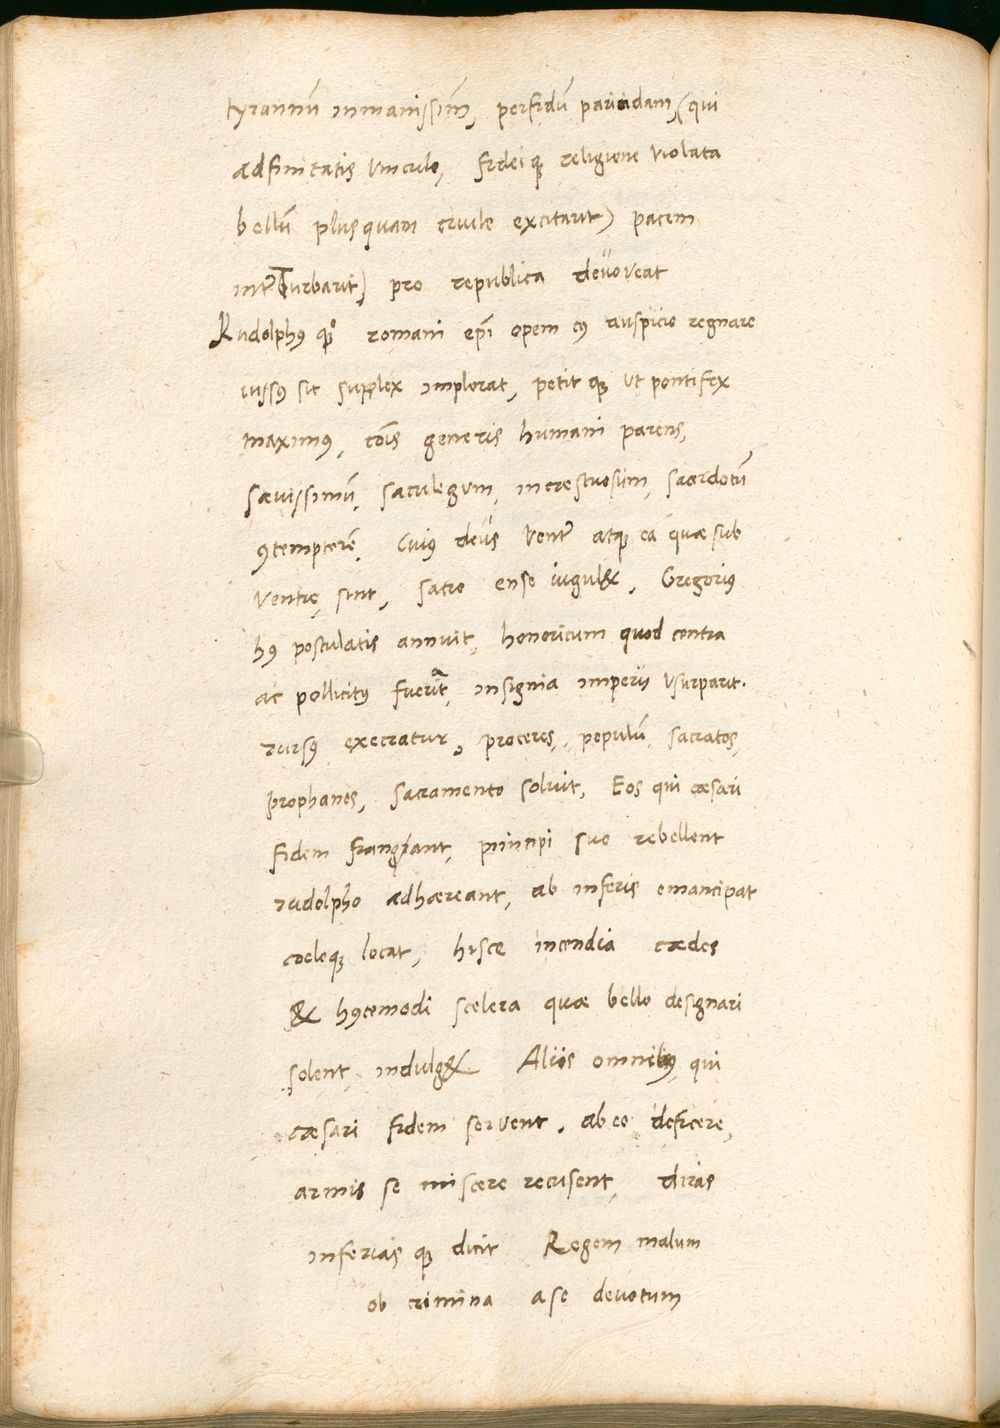 tyrannū inmanissim̄, perfidū paricidam, (qui
adfinitatis vinculo, fidei q; religione violata
bellū plus quam civile excitarit) pacem
inter turbarit) pro republica devoveat
Rudolphꝰ quoq; romani epī opem cꝰ auspicio regnare
iussꝰ sit supplex implorat, petit q; ut pontifex
maximꝰ, cōis generis humani parens,
sævissimū, sacrilegum, incæstuosum, sacerdotū
ꝯtemptorē. Cuiꝰ deus venter atq; ea quæ sub
ventre sunt, sacro ense iugul&, Gregoriꝰ
hꝰ postulatis annuit, henericum quod contra
ac pollicitꝰ fuerit, insignia imperii usurparit.
rursꝰ execratur, proceres, populū, sacratos,
prophanos, sacramento solvit, Eos qui cæsari
fidem frangant, principi suo rebellent
rudolpho adhæreant, ab inferis emancipat
cœloq; locat, hisce incendia cædes
& hꝰcemodi scelera quæ bello designari
solent, indulg& Aliis omnibꝰ, qui
cæsari fidem servent, ab eo deficere,
armis se miscere recusent, diras
inferias q; dicit Regem malum
ob crimina a se devotum